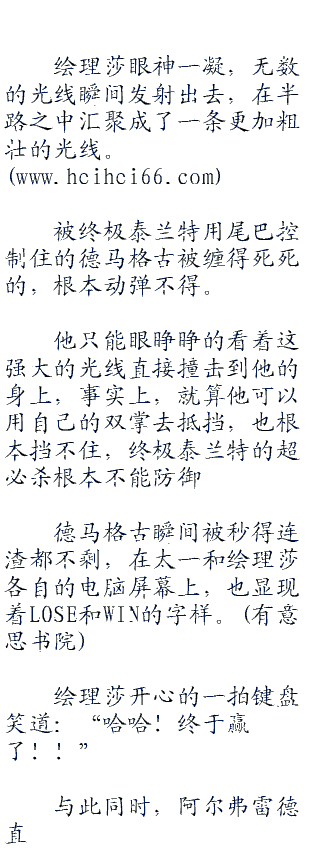 绘理莎眼神一凝，无数
的光线瞬间发射出去，在半
路之中汇聚成了一条更加粗
壮的光线。
(www.hcihci66.com)
被终极泰兰特用尾巴控
制住的德马格古被缠得死死
的，根本动弹不得。
他只能眼睁睁的看着这
强大的光线直接撞击到他的
身上，事实上，就算他可以
用自己的双掌去抵挡，也根
本挡不住，终极泰兰特的超
必杀根本不能防御
德马格古瞬间被秒得连
渣都不剩，在太一和绘理莎
各自的电脑屏幕上，也显现
着LOSE和WIN的字样。(有意
思书院)
绘理莎开心的一拍键盘
笑道：“哈哈！终于赢
了！！”
与此同时，阿尔弗雷德
直